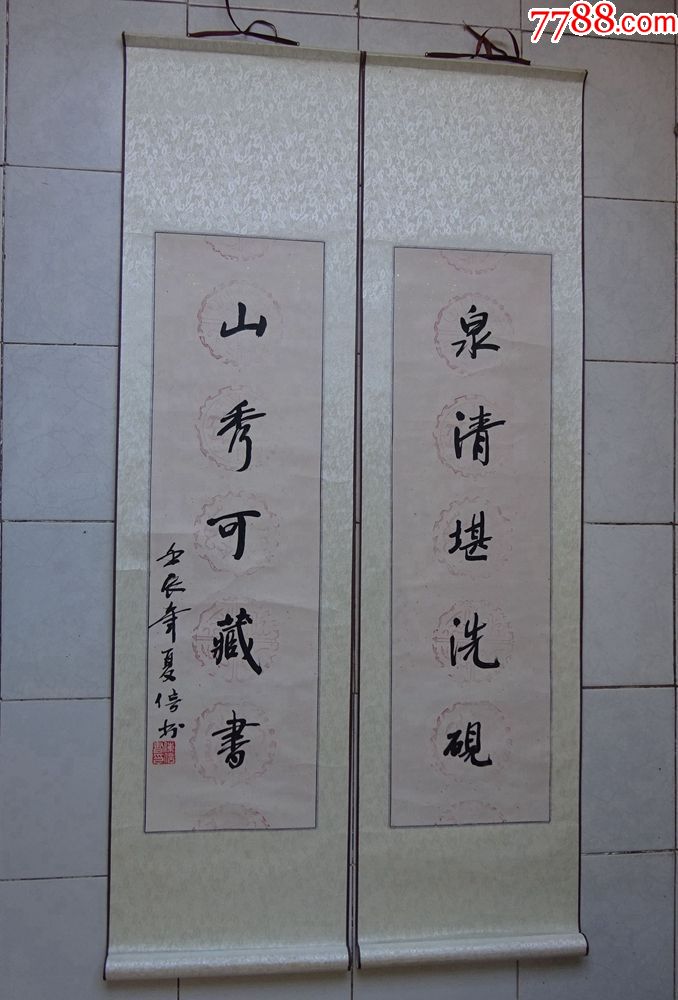 7788.com
泉清堪洗硯
山秀可藏書
壬辰年夏倍於